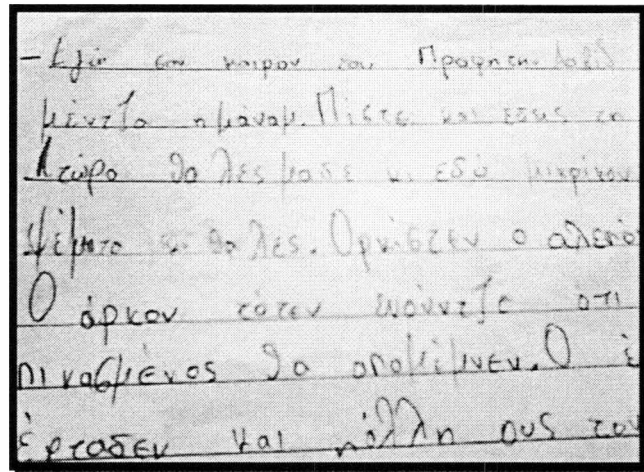 - Εγώ σον καιρον του Προφήτη Δαβίδ
μέντζο η μάναμ. Πίστε και εσείς τη
Ατώρα θα λες μασε κι εδώ μικρίκον
ψέματα θα λες. Ορνίστεν ο αλεπό
Ο άρκον τότεν επόνντζε ότι
πινασμένος θα απομέμνεν. Ο έ
έρταδεν και πόλλη ους τον